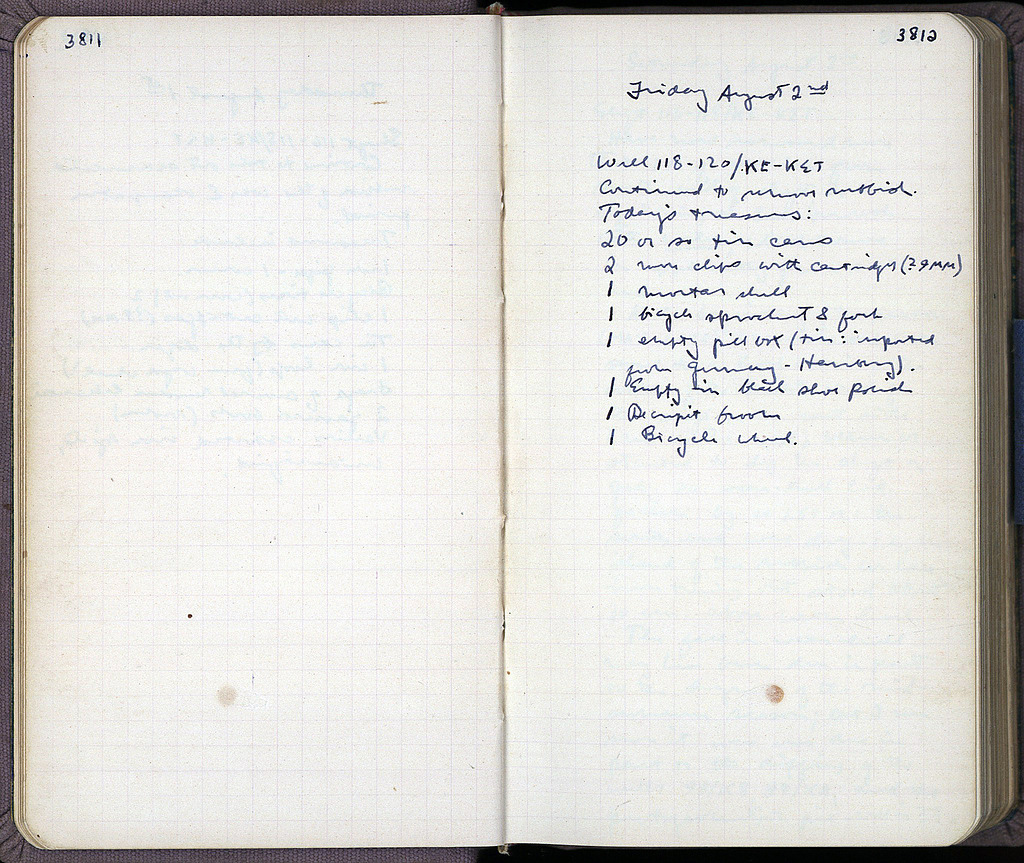 3811
3812
Friday August 2nd
Well 118-120/KE-KET
Continued to remove rubbish.
Today's treasures:
20 or so tin cans
2 more clips with cartridges (?9MM)
1 mortar shell
1 bicycle sprocket & fork
1 empty pill box (tin: imported
from Germany - Hamburg).
1 Empty tin black shoe polish
1 Decripit broom
1 Bicycle wheel.